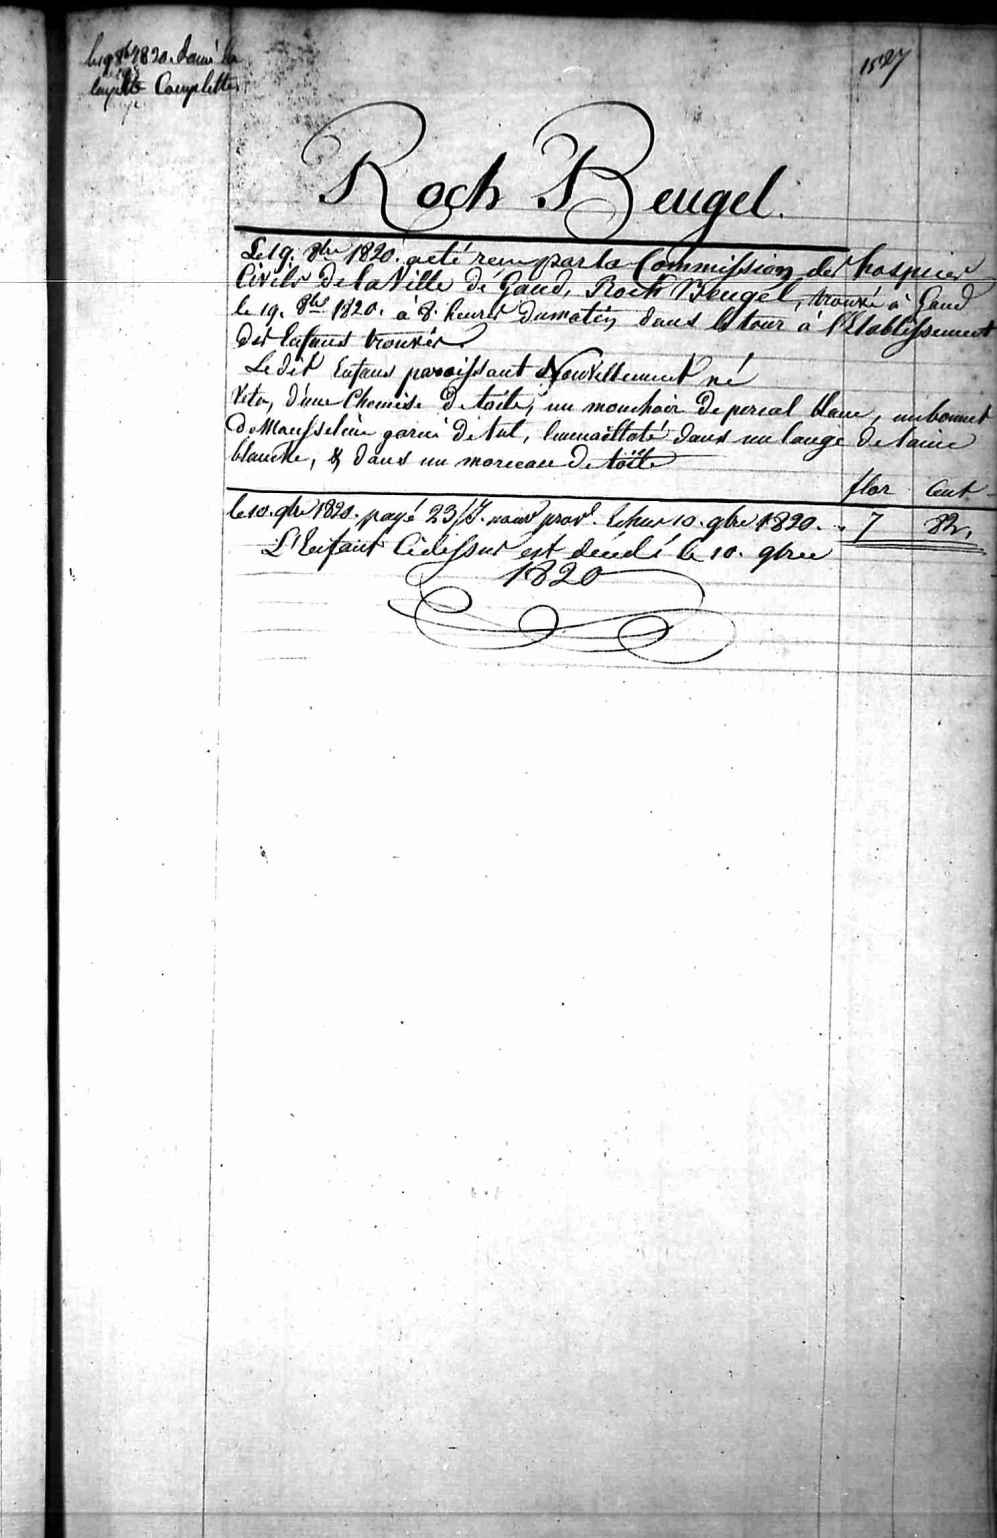 le 19 8bre 1820. donné la
layette Complette
1527
Roch Beugel.
Le 19. 8bre 1820. a eté recu par la Commission des hospices
Civils de la Ville de Gand, Roch Beugel, trouvé à Gand
le 19. 8bre 1820. à 8. heures du matin dans le tour à l'Etablissement
des Enfans trouvés
Le dit Enfans paroissant Nouvellement né
Vetu, d'une Chemise de toile, un mouchoir de percal blanc, un bonnet
de Mousseline garni de tul, Emmailloté dans un lange de laine
blanche, & dans un morceau de toile
flor Cent
le 10. 9bre 1820. payé 23 Echus 10. 9bre 1820. 7 82.
L'Enfant Cidessus est décédé le 10. 9bre
1820